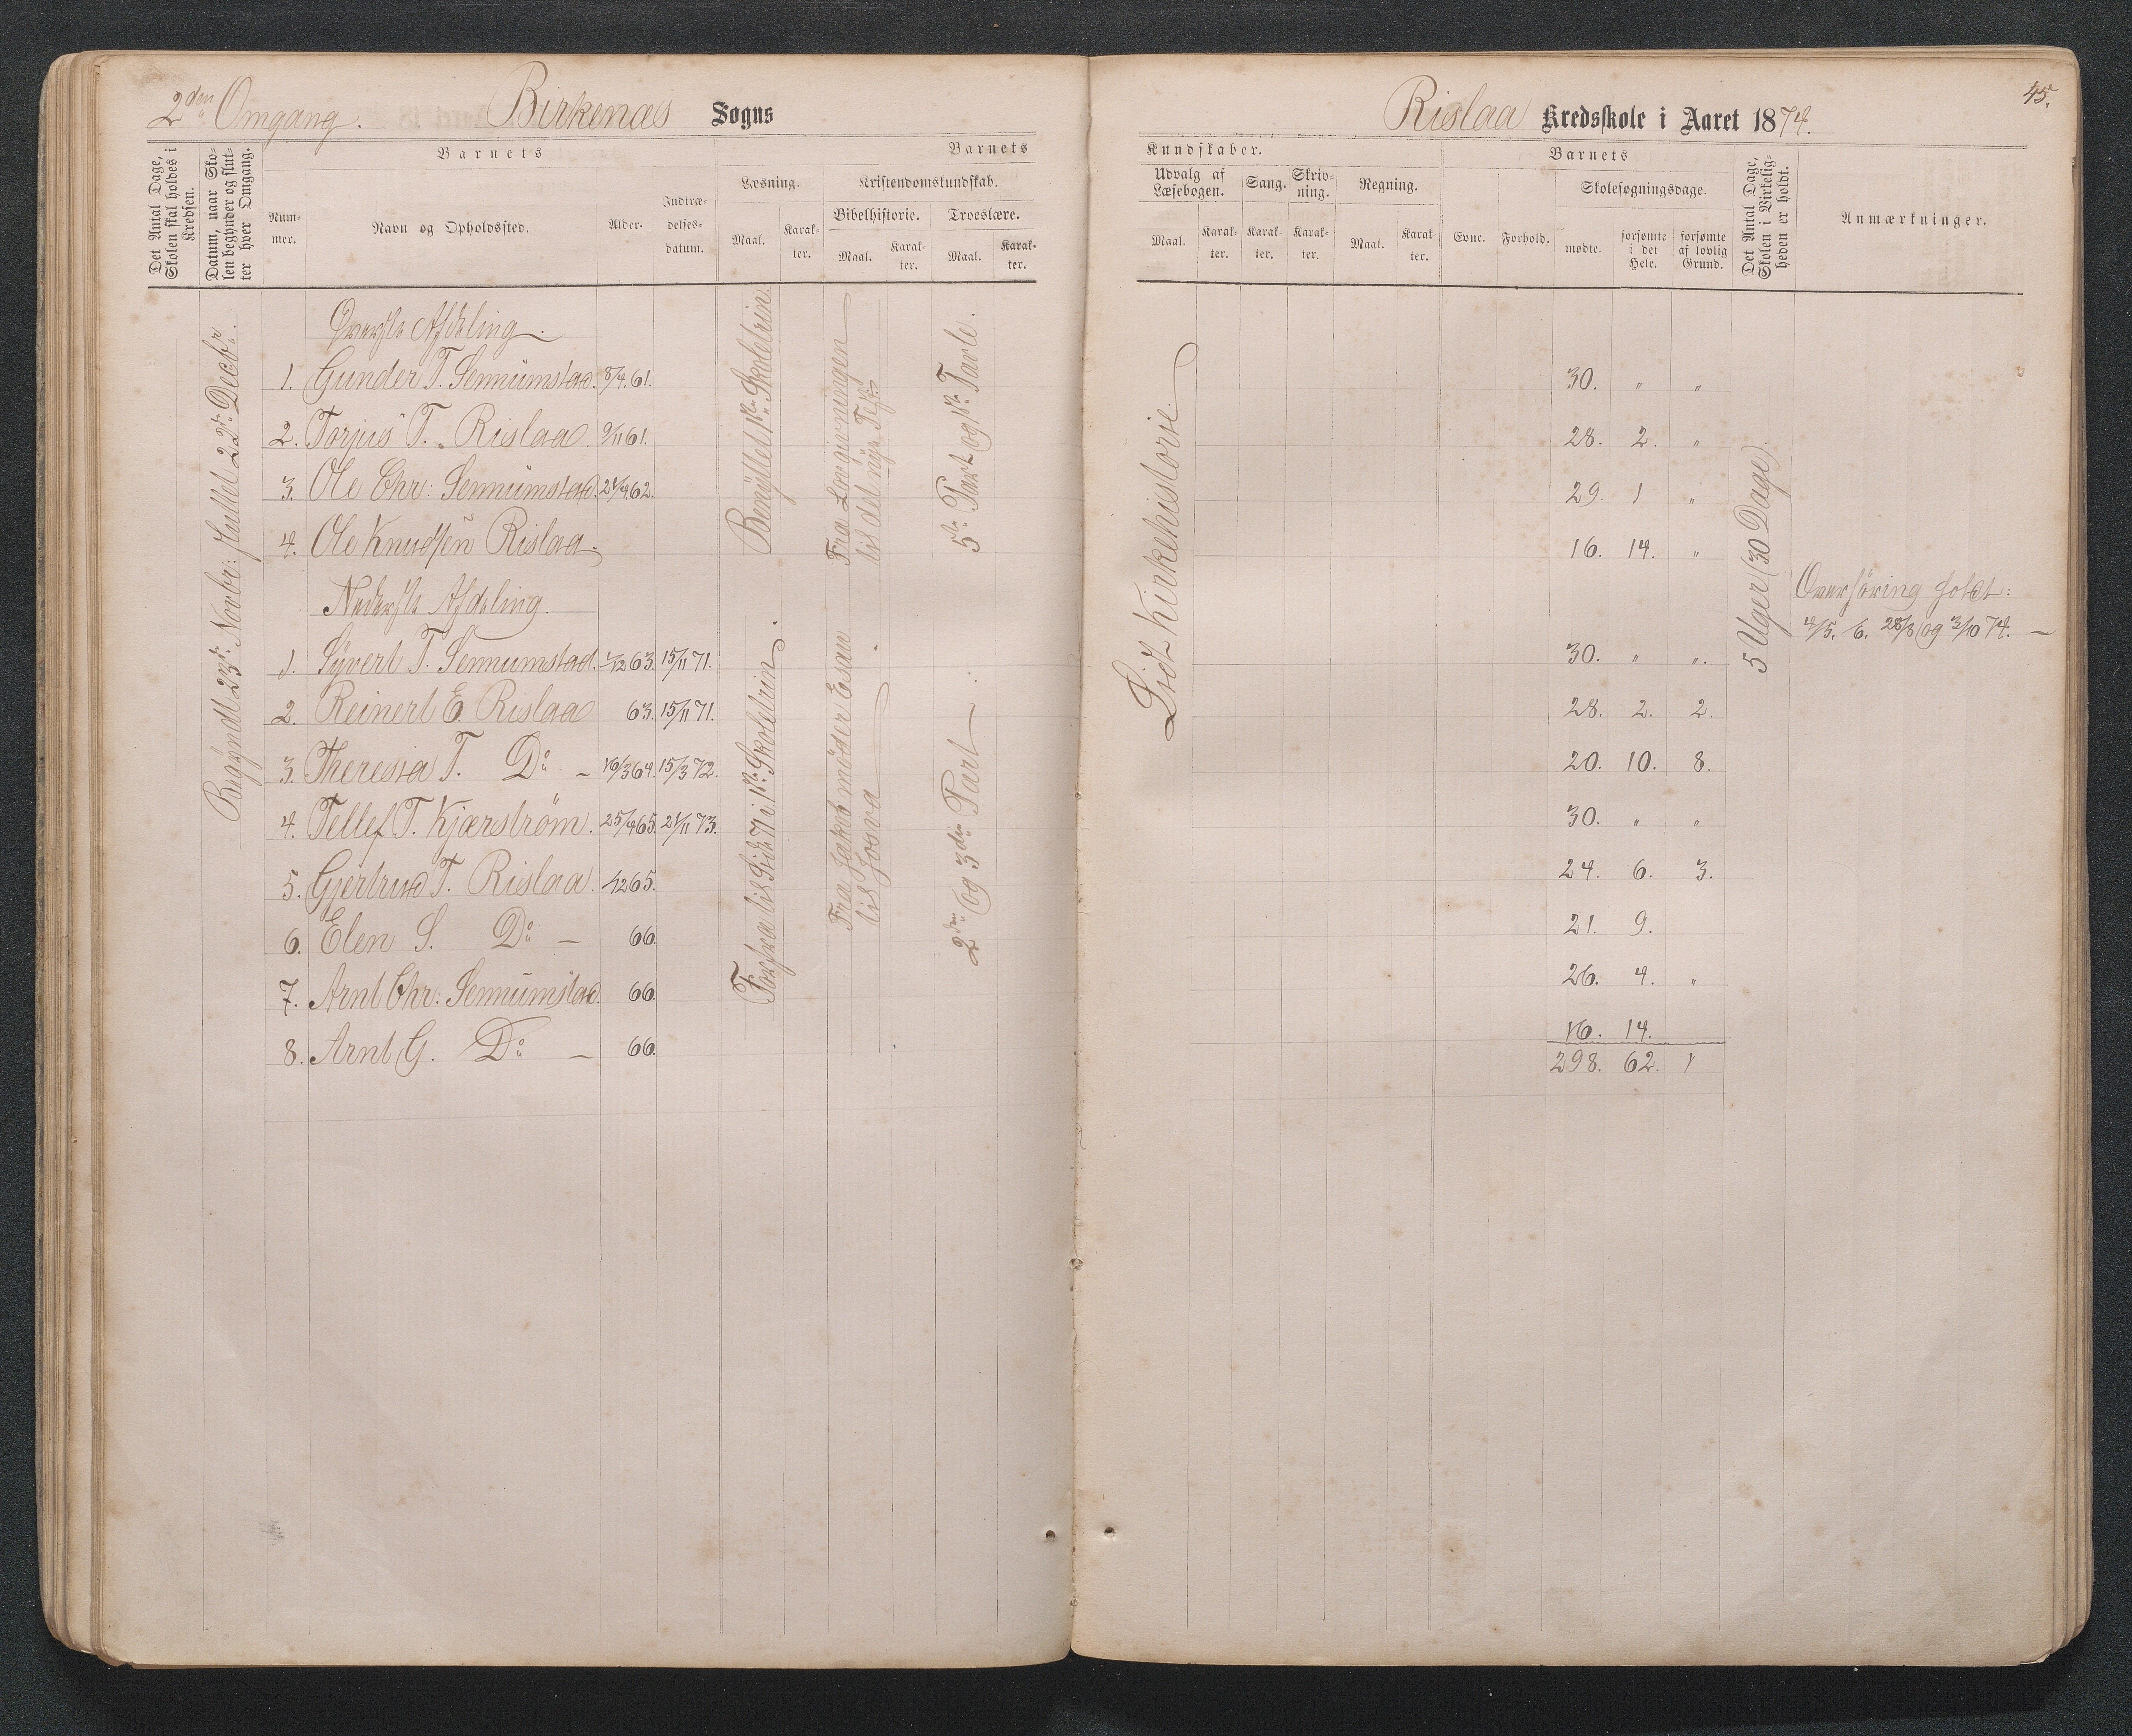 2den Omgang. Birkenæs Sogns
Det Antal Dage, Skolen skal holdes i Kredsen.
Datum, naar Skolen begynder og slutter hver Omgang.
Barnets
Nummer.
Navn og Opholdssted.
Alder.
Indtrædelsesdatum.
Barnets
Læsning.
Kristendomskundskab.
Bibelhistorie. Troeslære.
Maal. Karakter. Maal. Karakter. Maal. Karakter.
Begyndt 23de Novbr: sluttet 22de Decbr.
Øverste Afdeling.
1. Gunder T. Sennumstad. 8/4 61.
2. Torjus T. Rislaa. 9/11 61.
3. Ole Chr: Sennumstad. 21/4 62.
4. Ole Knudsen Rislaa.
Nederste Afdeling.
1. Syvert T. Sennumstad. 1/12 63. 15/11 71.
2. Reinert E. Rislaa 63. 15/11 71.
3. Theresia T. Do – 16/3 64. 15/3 72.
4. Tellef T. Kjærstrøm. 25/4 65. 21/11 73.
5. Gjertrud T. Rislaa. 1/12 65.
6. Elen S. Do – 66.
7. Arnt Chr: Sennumstad. 66.
8. Arnt G. Do – 66.
Benyttet 1ste Skoletrin.
til det nye Test.
5te Part og 1ste Tavle.
Forfra til Side 71 i 1ste Skoletrin
Fra Jakob møder Esau
til Josva
2den og 3die Part
45.
Rislaa Kredsskole i Aaret 1874.
Kundskaber.
Udvalg af Læsebogen.
Sang. Skrivning. Regning.
Maal. Karakter. Karakter. Karakter. Maal. Karakter.
Barnets
Evne. Forhold.
Skolesøgningsdage.
mødte. forsømte i det Hele. forsømte af lovlig Grund.
Det Antal Dage, Skolen i Virkeligheden er holdt.
Anmærkninger.
Lidt Kirkehistorie.
30. " "
28. 2. "
29. 1 "
16. 14. "
30. " ".
28. 2. 2.
20. 10. 8.
30. " "
24. 6. 3.
21. 9.
26. 4. "
16. 14.
298. 62. 1
5 Uger (30 Dage)
Overhøring holdt:
4/5. 6. 28/8 og 3/10 74. –